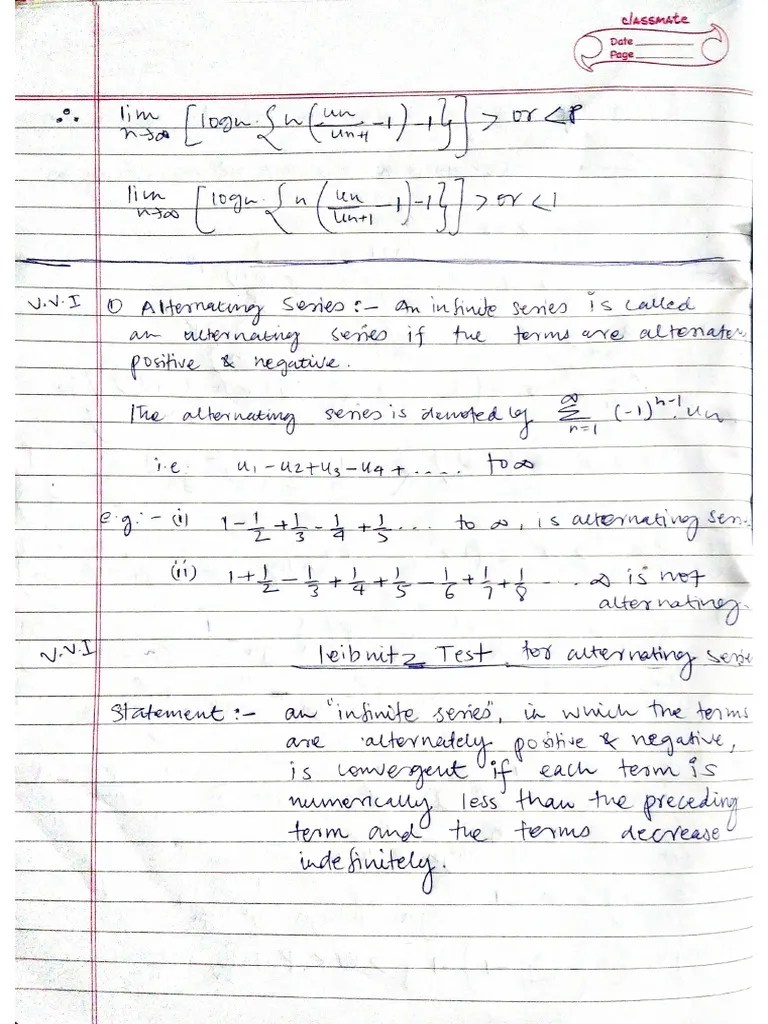 classmate
Date
Page
∴ lim n→∞ [logn·{n(un/un+1 -1)-1}] > or < P
lim n→∞ [logn·{n(un/un+1 -1)-1}] > or < 1
V.V.I ① Alternating Series:- An infinite series is called
an alternating series if the terms are alternate
positive & negative.
The alternating series is denoted by ∞ Σ n=1 (-1)^n-1. un
i.e. u1 - u2 + u3 - u4 + ..... to ∞
e.g:- (i) 1 - 1/2 + 1/3 - 1/4 + 1/5 ... to ∞, is alternating seri
(ii) 1 + 1/2 - 1/3 + 1/4 + 1/5 - 1/6 + 1/7 + 1/8 - ... ∞ is not
alternating.
V.V.I Leibnitz Test for alternating serie
Statement:- an "infinite series", in which the terms
are alternately positive & negative,
is convergent if each term is
numerically less than the preceding
term and the terms decrease
indefinitely.